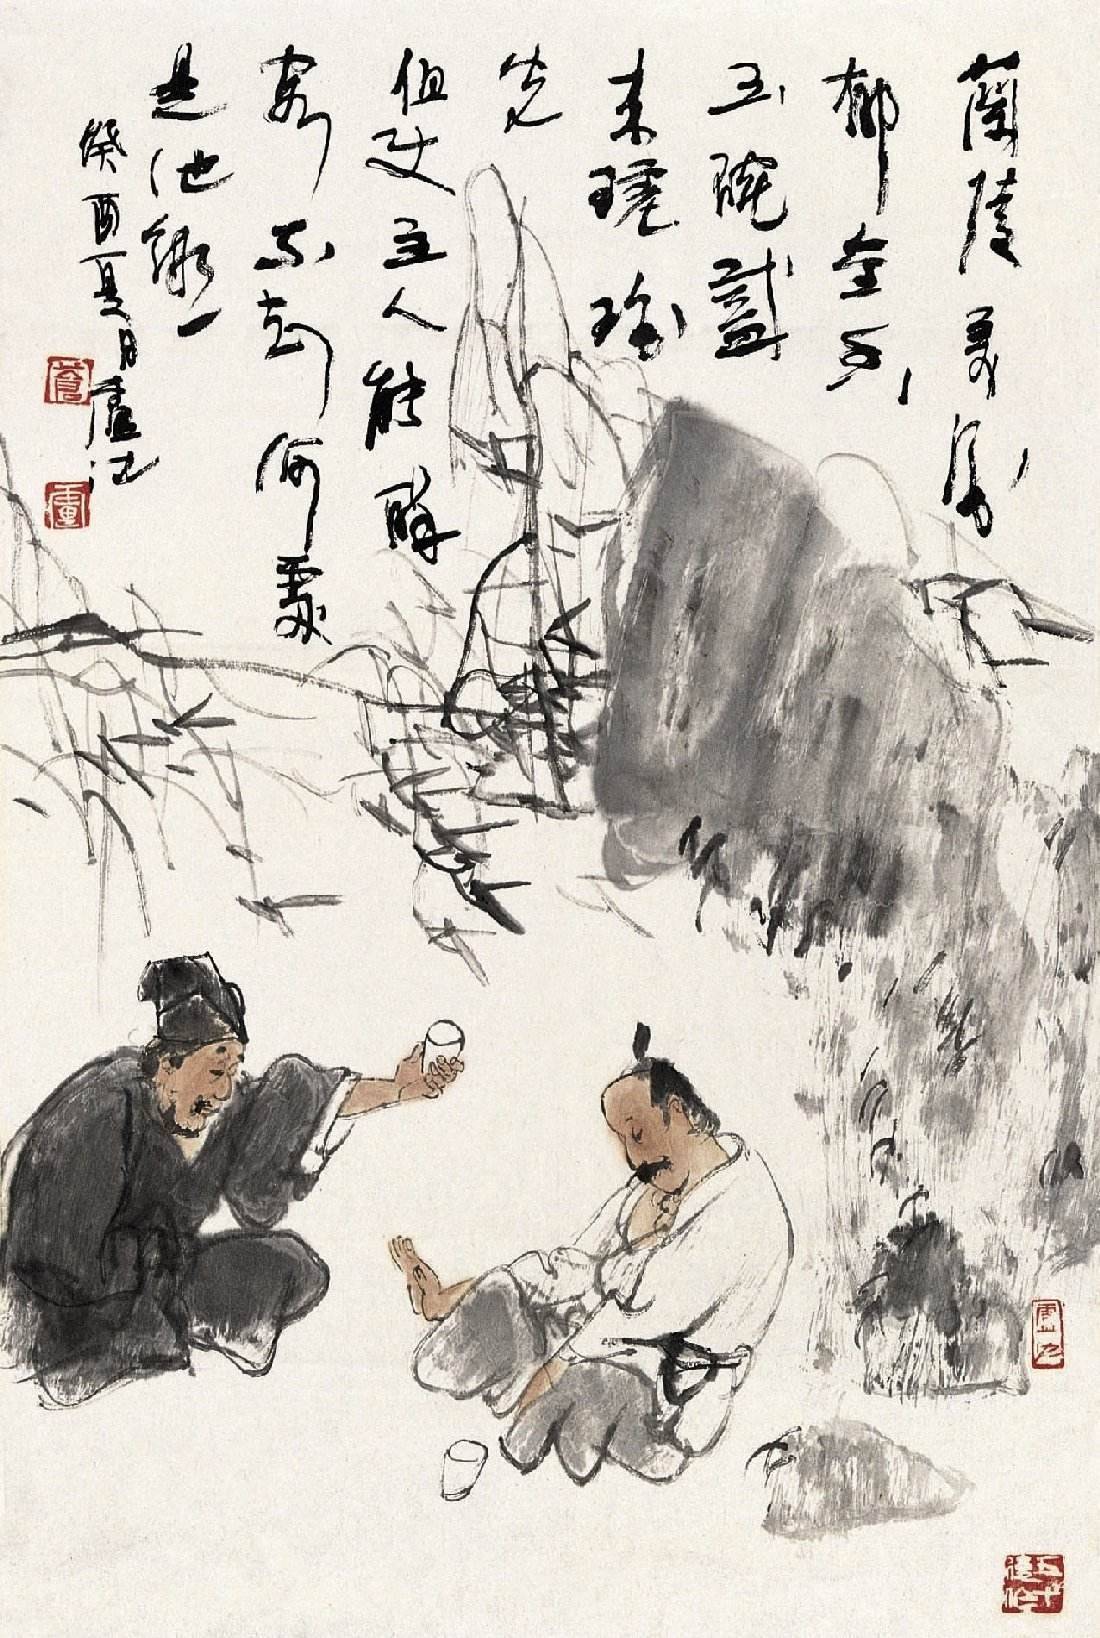 蘭陵美酒
郁金香
玉碗盛
来琥珀
光
但使主人能醉
客不知何處
是他鄉
癸酉夏月盧沉